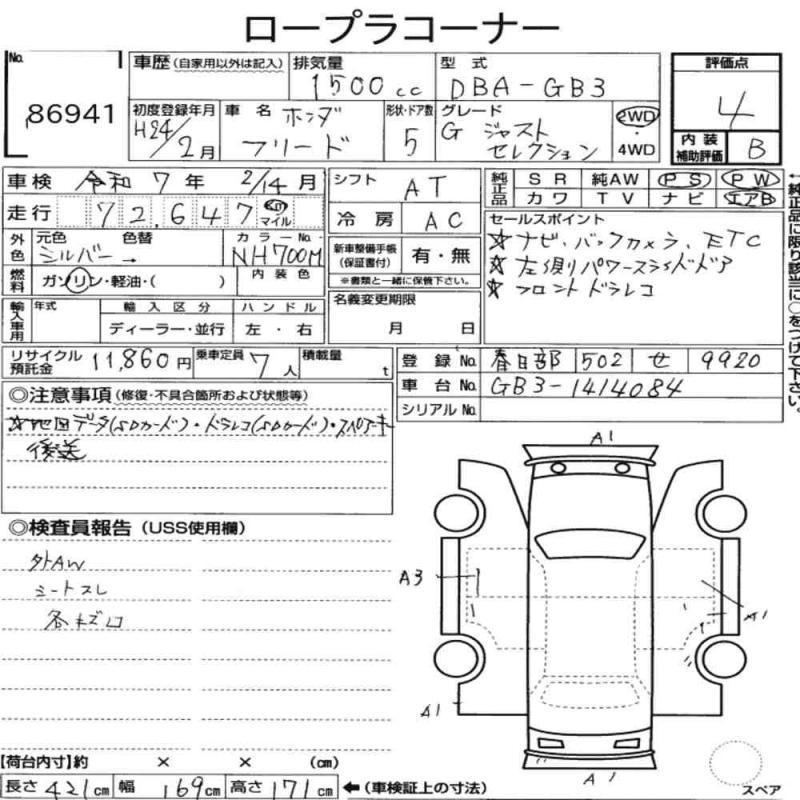 ロープラコーナー
No.
86941
車歴 (自家用以外は記入)
排気量
1500cc
型 式
DBA-GB3
評価点
4
初度登録年月
H24/2月
車 名
ホンダ
フリード
形状・ドア数
5
グレード
G ジャスト
セレクション
2WD
4WD
内 装
補助評価
B
車検 令和 7 年 2/14 月
シフト
AT
純正品
SR 純AW PS PW
カワ TV ナビ エアB
走行 72,647 km マイル
冷 房
AC
セールスポイント
☆ナビ、バックカメラ、ETC
☆左側パワースライドドア
☆フロントドラレコ
外色
元色 色替
シルバー →
カラーNo.
NH700M
新車整備手帳
(保証書付)
有・無
※書類と一緒に保管下さい。
燃料
ガソリン・軽油・( )
内装色
名義変更期限
月 日
輸入車用
年式
輸入区分
ディーラー・並行
ハンドル
左・右
リサイクル
預託金
11,860円
乗車定員 7人
積載量
t
登録No. 春日部 502 せ 9920
車台No. GB3-1414084
シリアルNo.
◎注意事項 (修復・不具合箇所および状態等)
☆地図データ(SDカード)・ドラレコ(SDカード)・スペアキー
後送
◎検査員報告 (USS使用欄)
外AW
シートスレ
各キズ凹
A1
A3
A1
A1
A1
スペア
【荷台内寸】約 × × (cm)
長さ 421cm 幅 169cm 高さ 171cm
←(車検証上の寸法)
←純正品に限り該当に○をつけて下さい。